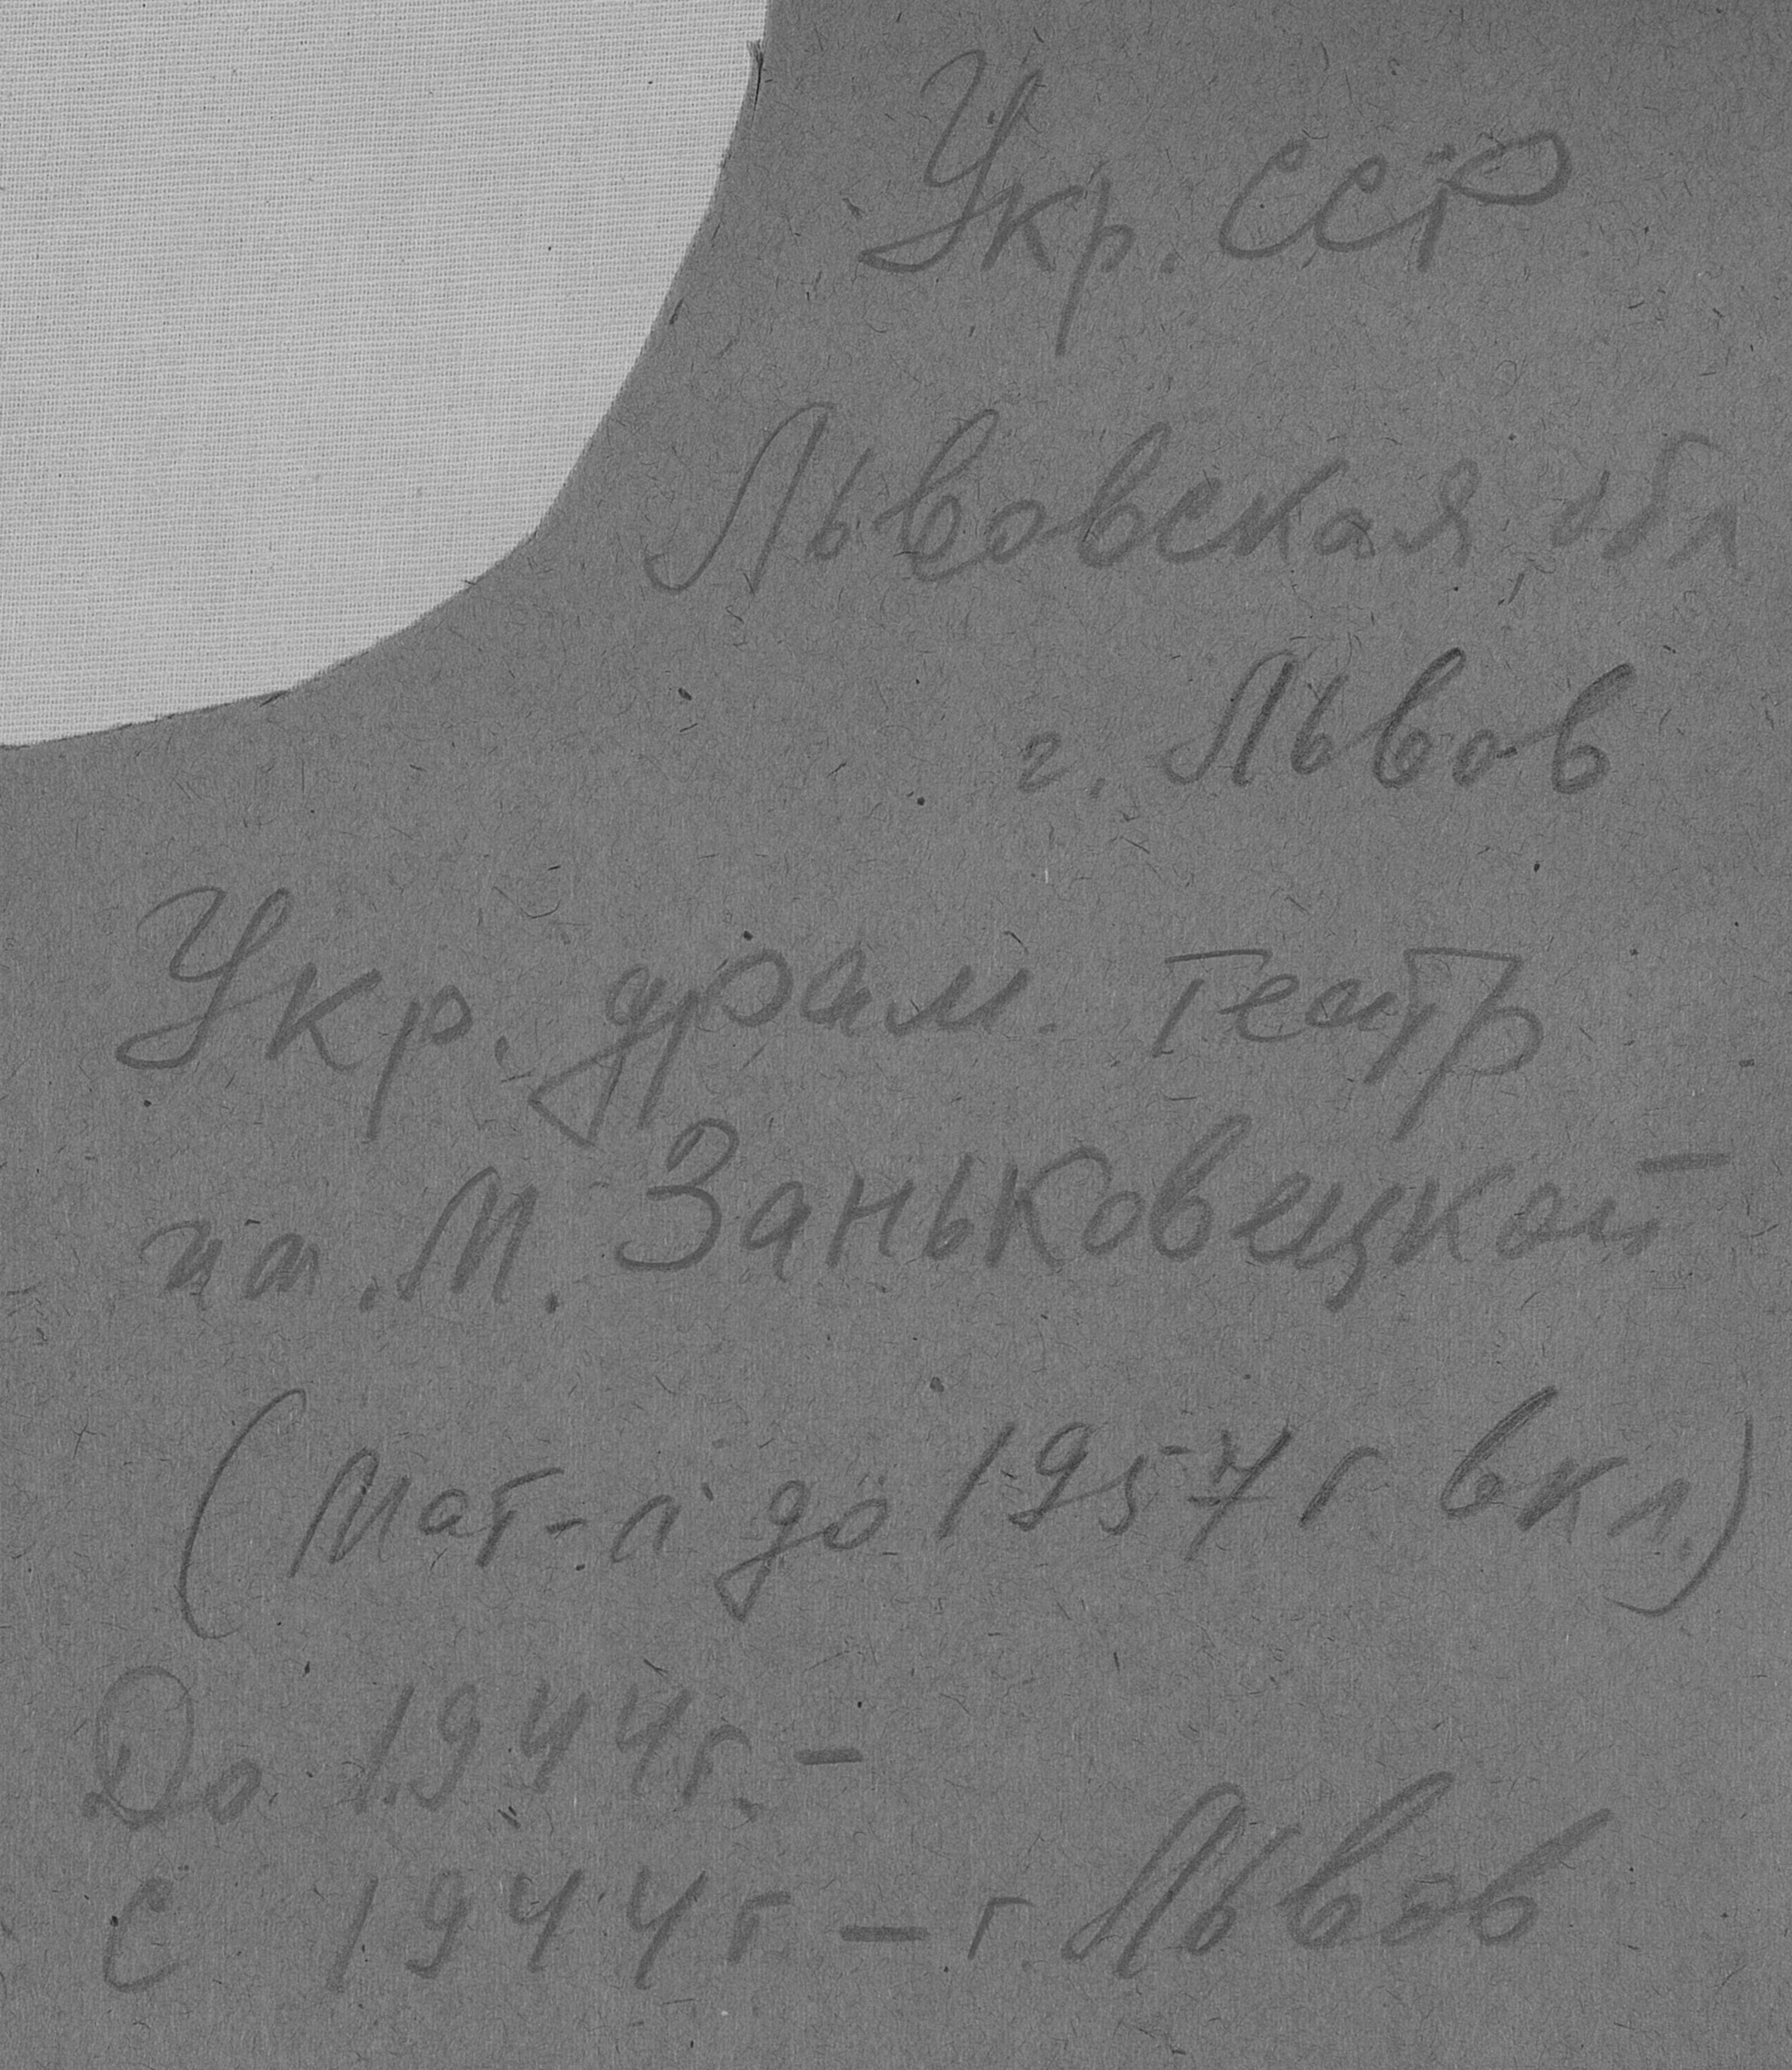 Укр. ССР
Львовская обл
г. Львов
Укр. драм. театр
им. М. Заньковецкой
(Мат-л до 1957 г вкл.)
До 1944 г. –
С 1944 г – г. Львов